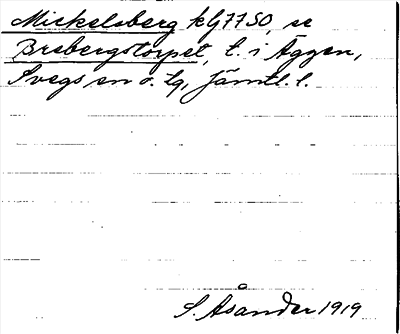 Mickelsberg klg 7750, se
Brebergstorpet, t. i Äggen,
Svegs sn o. tg, Jämtl. l.
S. Åsander 1919